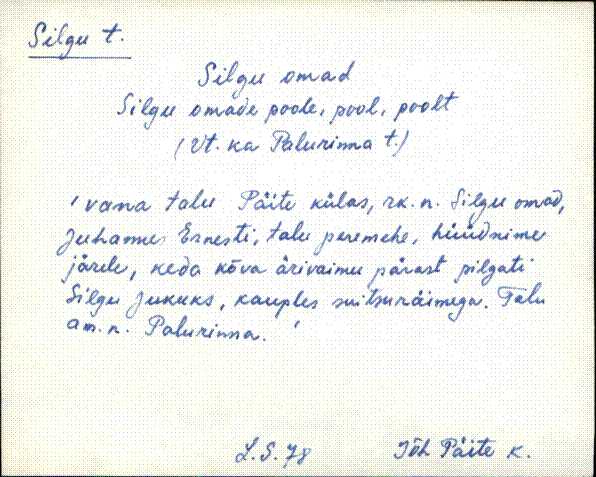 Silgu t.
Silgu omad
Silgu omade poole, pool, poolt
(Vt. ka Palurinna t.)
'vana talu Päite külas, rk. n. Silgu omad,
Juhannes Ernesti, talu peremehe, hüüdnime
järele, keda kõva ärivaimu pärast pilgati
Silgu Jukuks, kauples suitsuräimega. Talu
am. n. Palurinna.'
L.S. 78 Jõh Päite k.